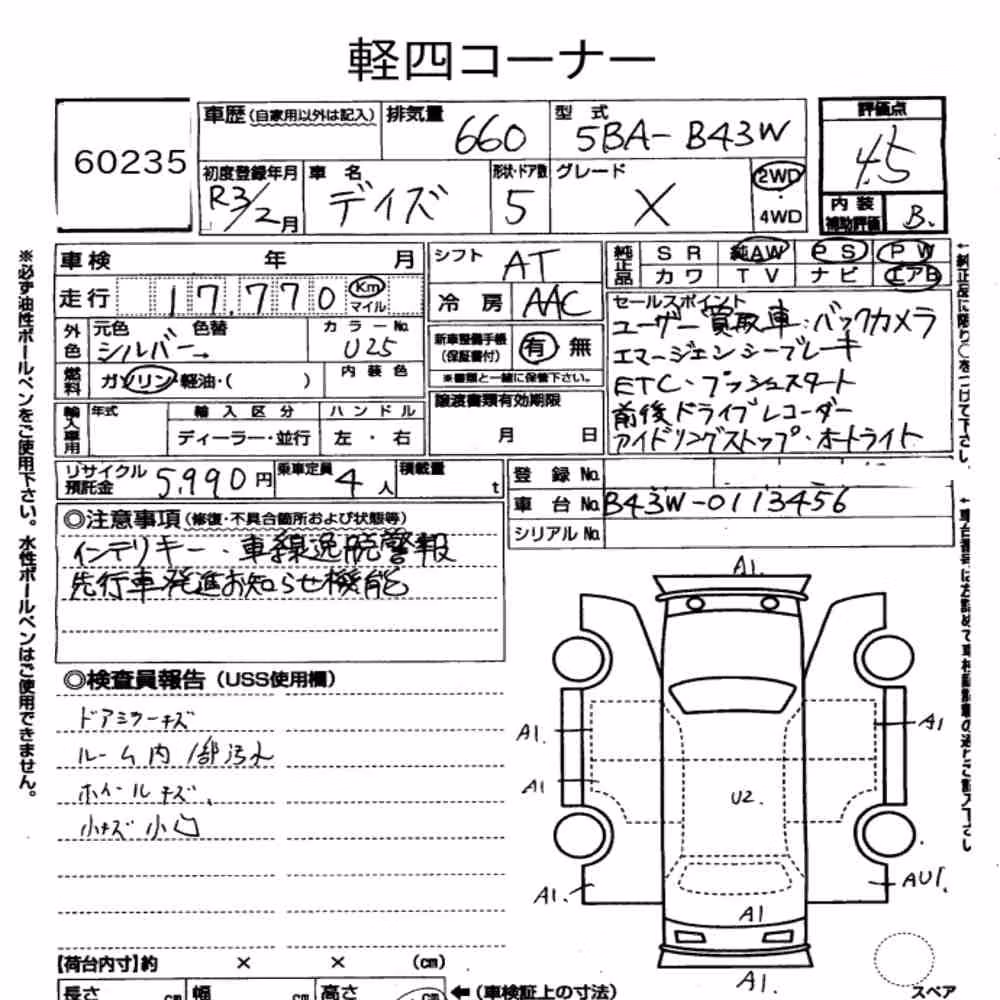 軽四コーナー
60235
車歴(自家用以外は記入) 排気量 660 型式 5BA-B43W
評価点 4.5
初度登録年月 R3/2月 車名 デイズ 形状・ドア数 5 グレード X 2WD・4WD
内装補助評価 B.
車検 年 月 シフト AT
純正品 SR 純AW PS PW
カワ TV ナビ エアB
走行 17,770 Km マイル 冷房 AAC
外色 元色 シルバー→ 色替 カラーNo. U25
新車整備手帳(保証書付) 有 無
※書類と一緒に保管下さい。
燃料 ガソリン・軽油・( ) 内装色
セールスポイント
ユーザー買取車・バックカメラ
エマージェンシーブレーキ
ETC・プッシュスタート
前後ドライブレコーダー
アイドリングストップ・オートライト
輸入車用 年式 輸入区分 ハンドル
ディーラー・並行 左・右
譲渡書類有効期限
月 日
リサイクル預託金 5,990円 乗車定員 4人 積載量 t
登録No.
車台No. B43W-0113456
シリアルNo.
◎注意事項(修復・不具合箇所および状態等)
インテリキー・車線逸脱警報
先行車発進お知らせ機能
◎検査員報告(USS使用欄)
ドアミラーキズ
ルーム内1部汚れ
ホイールキズ、
小キズ小凹
A1.
A1.
A1
A1
U2.
A1.
AU1.
A1
A1.
スペア
【荷台内寸】約 × × (cm)
長さ cm 幅 cm 高さ cm ←(車検証上の寸法)
※必ず油性ボールペンをご使用下さい。水性ボールペンはご使用できません。